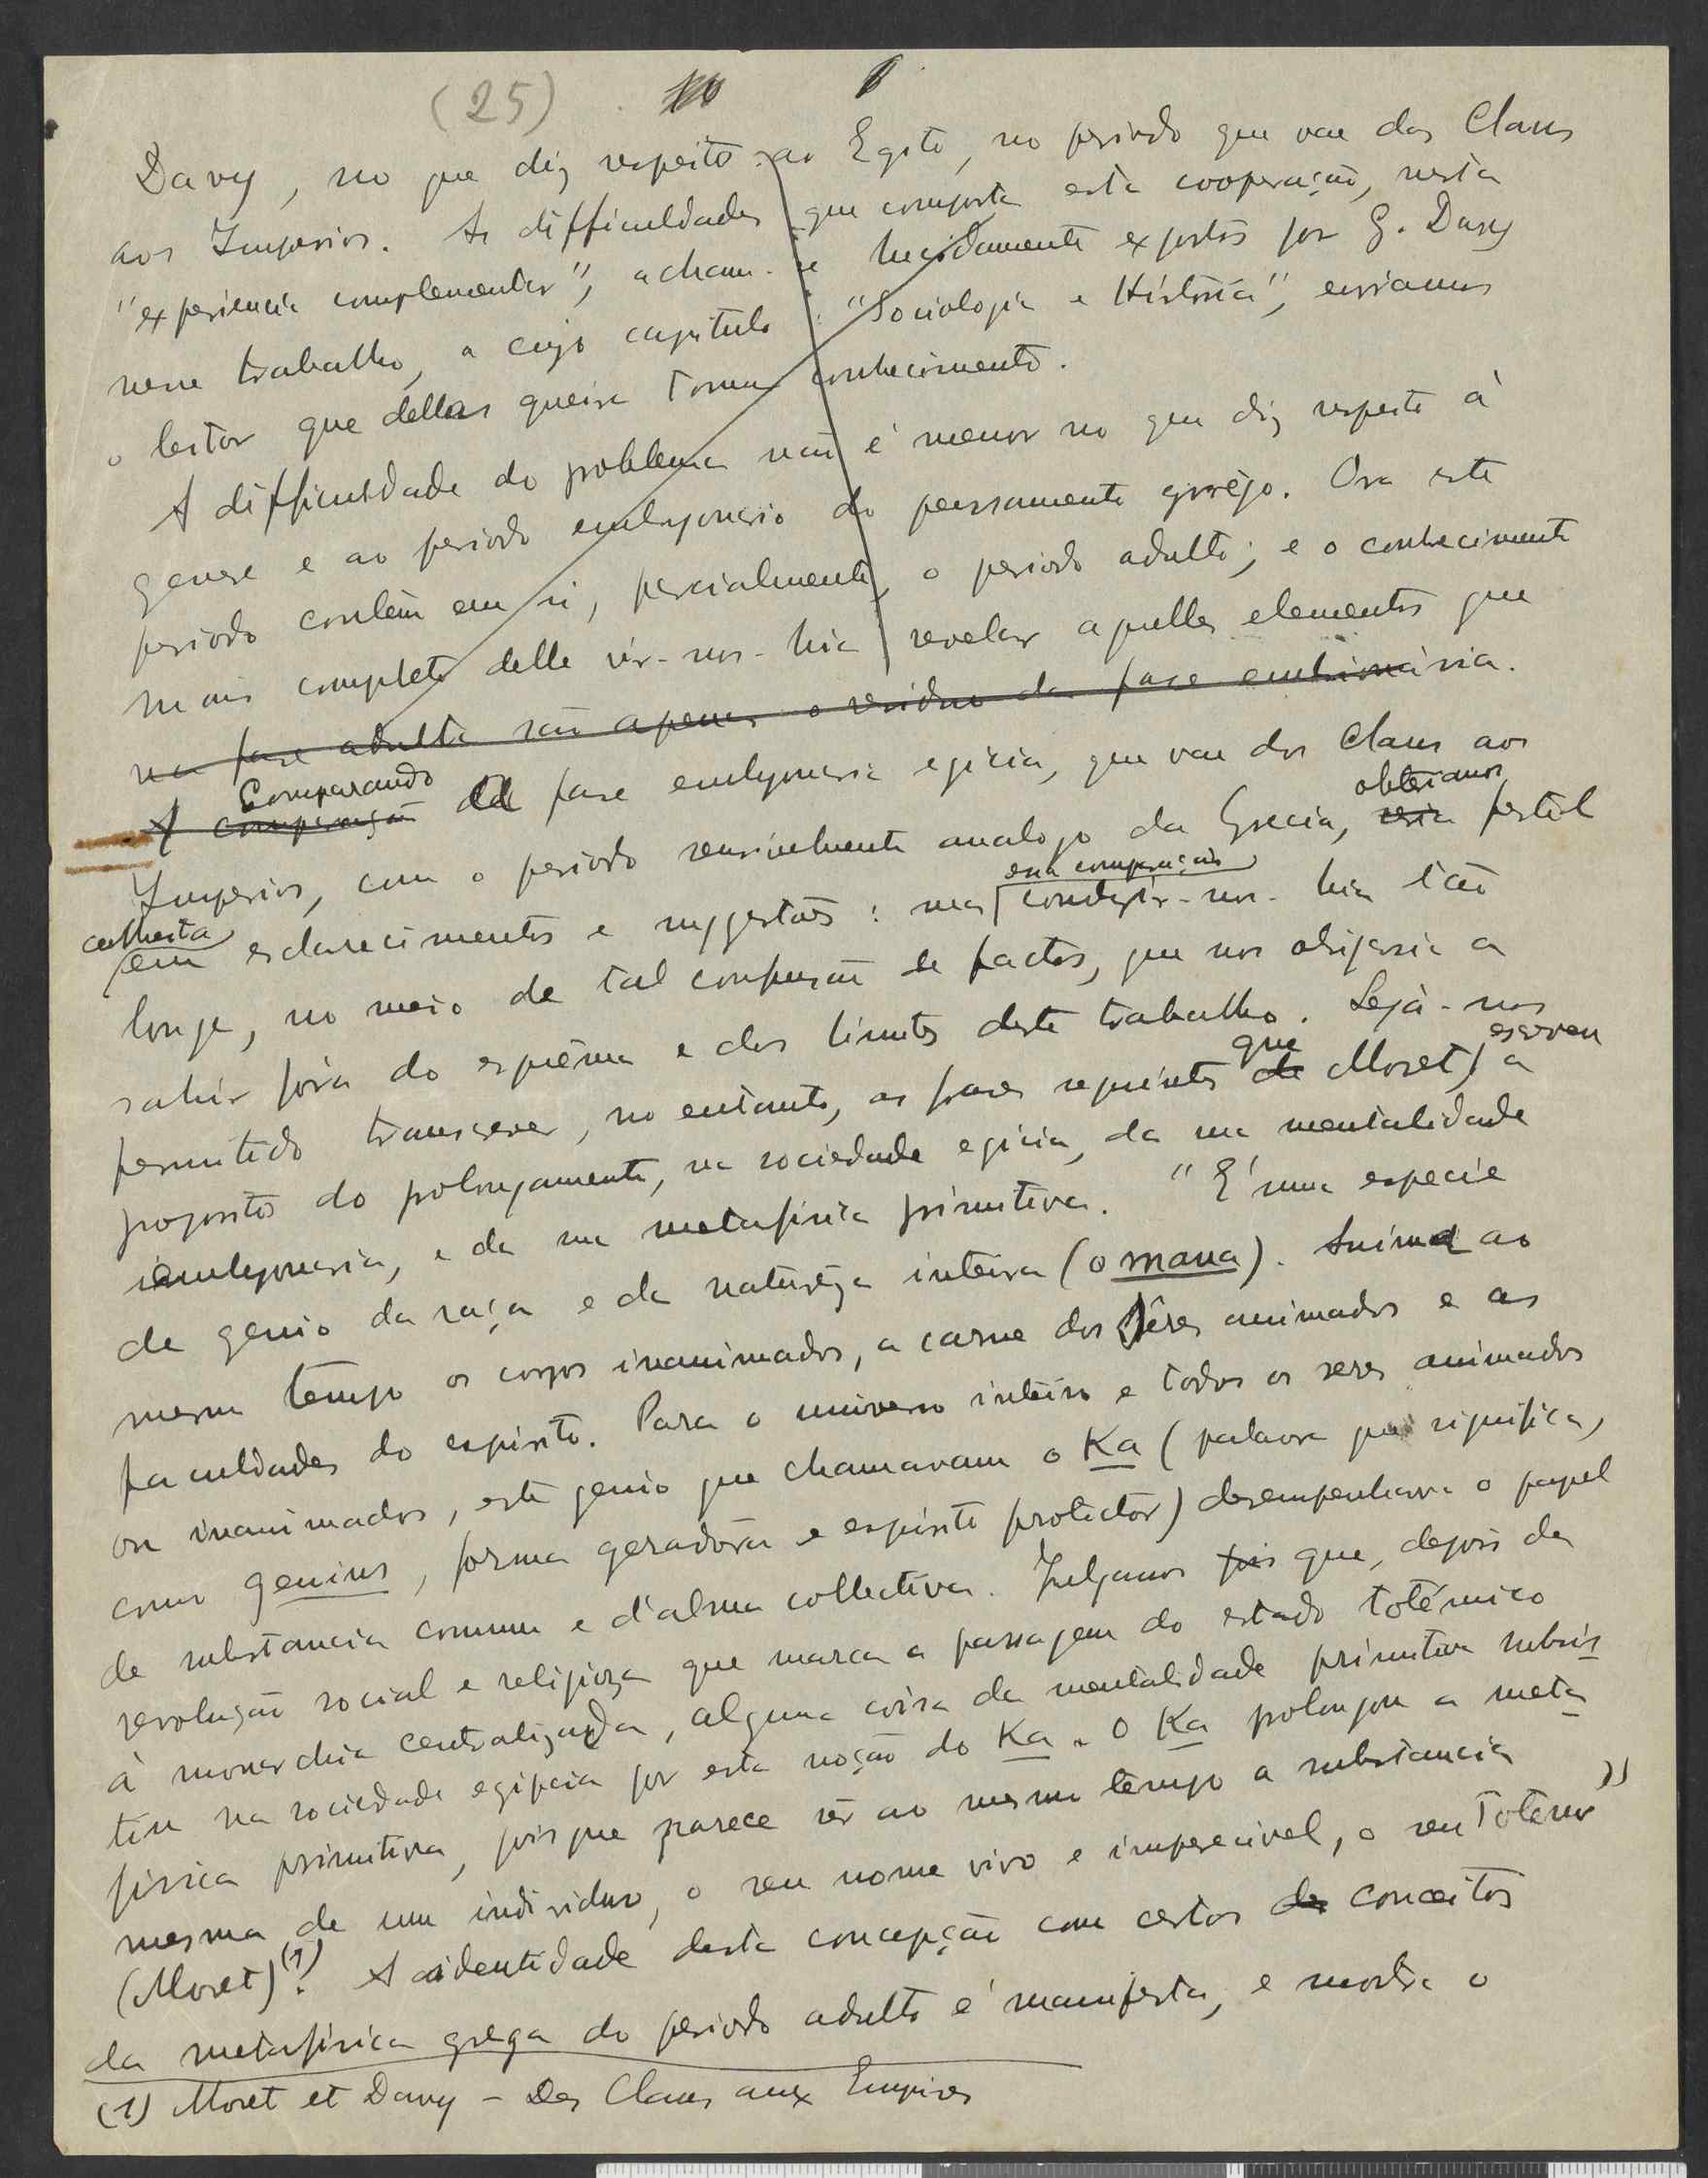 (25)
Davy, no que diz respeito ao Egito, no periodo que vae dos Clans
aos Imperios. As difficuldades que comporta esta cooperação, nesta
"experiencia complementar", acham-se lucidamente expostas por G. Davy
nesse trabalho, a cujo capitulo: "Sociologia e Historia", enviamos
o leitor que dellas queira tomar conhecimento.
A difficuldade do problema não é menor no que diz respeito á
genese e ao periodo embryonario do pensamento grêgo. Ora este
periodo contêm em si, parcialmente, o periodo adulto; e o conhecimento
mais completo delle vir-nos-hia revelar aquelles elementos que
na fase adulta são apenas o residuo da fase embrionária.
Comparando
A comparação da fase embryonaria egicia, que vae dos Clans aos
obteriamos
Imperios, com o periodo sensivelmente analogo da Grecia, seria fertil
essa comparação
colheita
em esclarecimentos e suggestões: mas conduzir-nos-hia tão
longe, no meio de tal confusão de factos, que nos obrigaria a
sahir fóra do esquêma e dos limites deste trabalho. Seja-nos
que escreveu
permitido transcrever, no entanto, as frases seguintes de Moret, a
proposito do prolongamento, na sociedade egicia, da sua mentalidade
embryonaria, e da sua metafisica primitiva. "E' uma especie
de genio da raça e da naturêza inteira (o mana). Anima ao
mesmo tempo os corpos inanimados, a carne dos sêres animados e as
faculdades do espirito. Para o universo inteiro e todos os seres animados
ou inanimados, este genio que chamavam o Ka (palavra que significa,
como genius, forma geradôra e espirito protector) desempenhava o papel
de substancia commum e d'alma collectiva. Julgamos pois que, depois da
revolução social e religioza que marca a passagem do estado totémico
á monarchia centralizada, alguma coisa da mentalidade primitiva subsis
tiu na sociedade egipcia por esta noção do Ka. O Ka prolongou a meta
fisica primitiva, pois que parece ser ao mesmo tempo a substancia
mesma de um individuo, o seu nome vivo e imperecivel, o seu Totem"
(Moret)(1). A identidade desta concepção com certos de conceitos
da metafisica grega do periodo adulto é manifesta, e mostra o
(1) Moret et Davy - Des Clans aux Empires